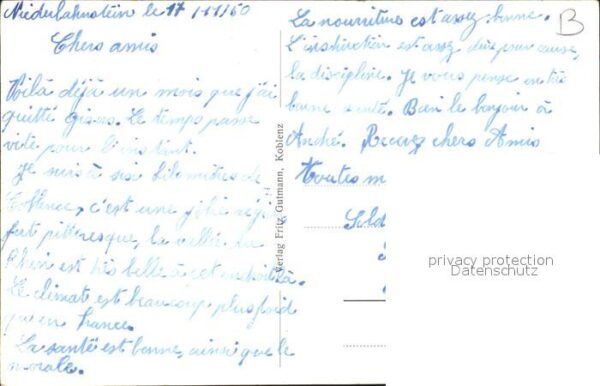 Niederlahnstein le 17/11/60
Chers amis
Voilà déjà un mois que j'ai
quitté Gisors. Le temps passe
vite pour l'instant.
Je suis à six kilomètres de
Coblence, c'est une jolie région
fort pittoresque, la vallée du
Rhin est très belle à cet endroit là.
Le climat est beaucoup plus froid
qu'en France.
La santé est bonne, ainsi que le
morale.
Verlag Fritz Gutmann, Koblenz
La nourriture est assez bonne.
L'instruction est assez dure pour
la discipline. Je vous pense en très
bonne santé. Bien le bonjour à
André. Recevez chers Amis
Toutes m
Sold
B
privacy protection
Datenschutz